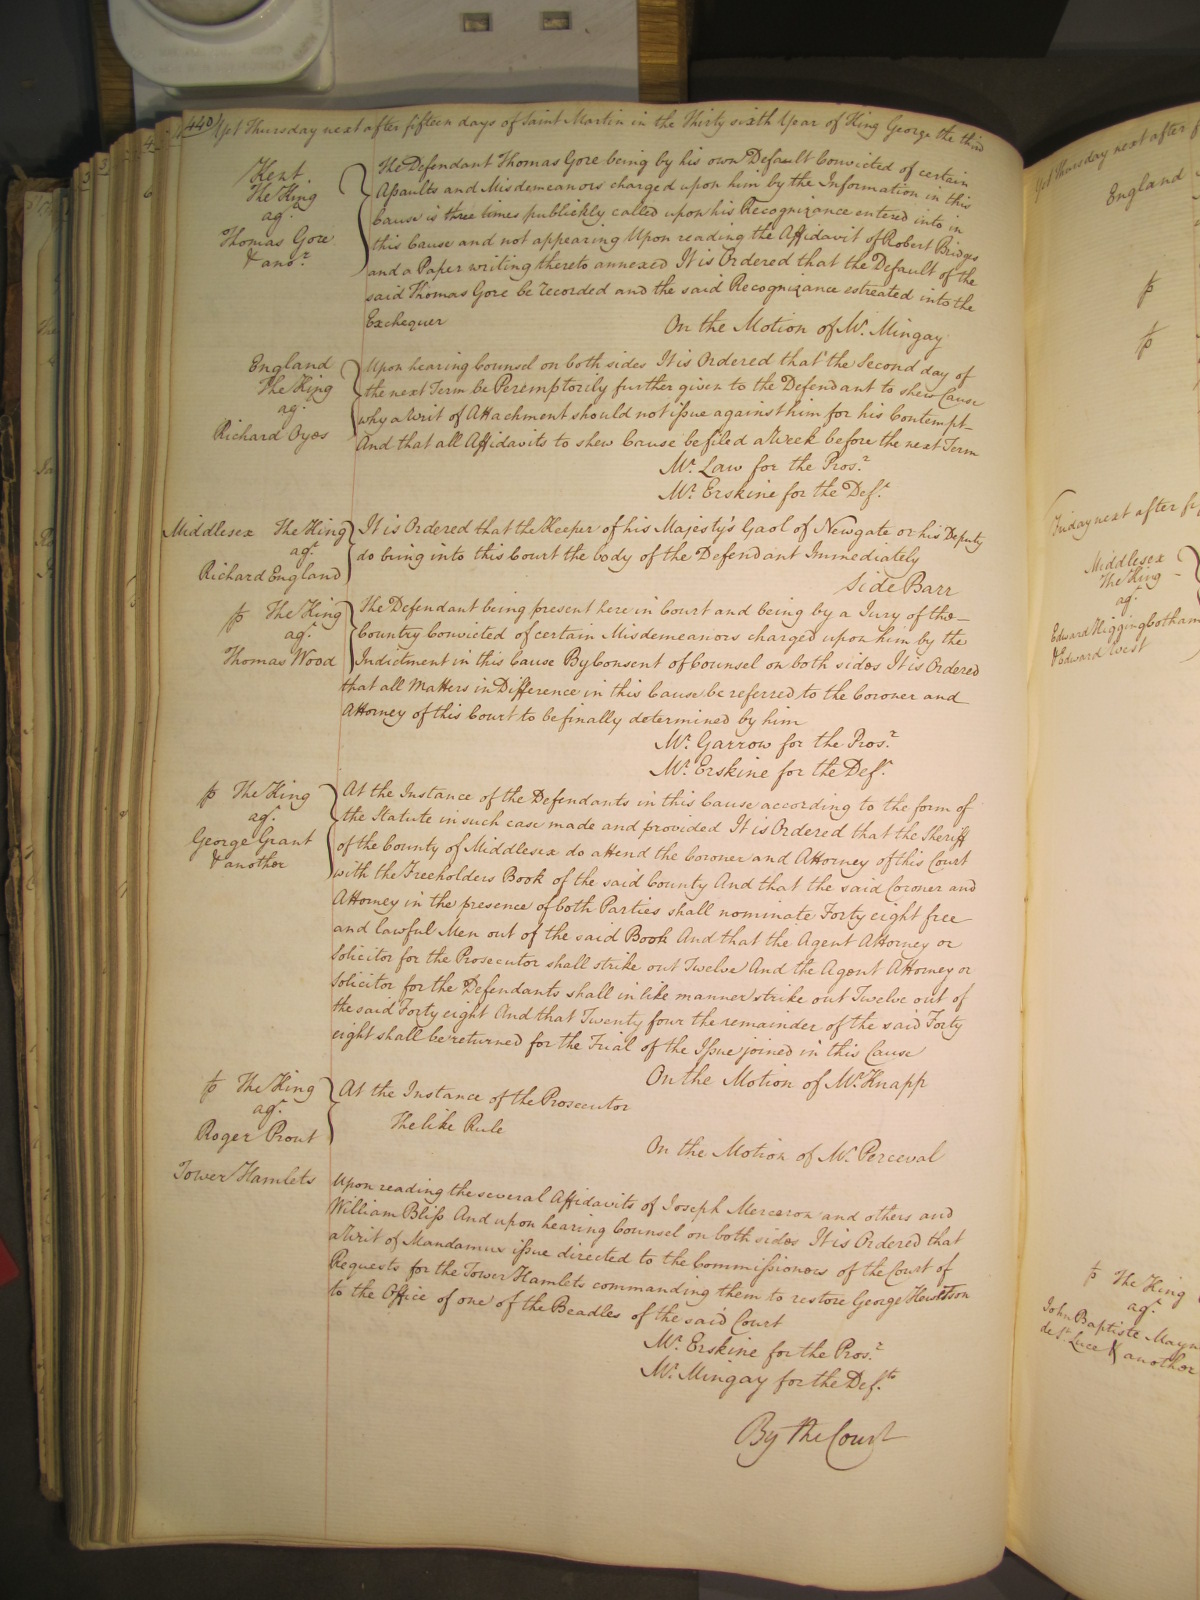 440
Yet Thursday next after fifteen days of Saint Martin in the Thirty sixth Year of King George the third
Kent.
The King
agt.
Thomas Gore
& anor.
The Defendant Thomas Gore being by his own Default Convicted of certain
Assaults and Misdemeanors charged upon him by the Information in this
Cause is three times publickly called upon his Recognizance entered into in
this Cause and not appearing Upon reading the Affidavit of Robert Bridges
and a Paper writing thereto annexed It is Ordered that the Default of the
said Thomas Gore be recorded and the said Recognizance estreated into the
Exchequer
On the Motion of Mr. Mingay
England
The King
agt.
Richard Oyes
Upon hearing Counsel on both sides It is Ordered that the Second day of
the next Term be Peremptorily further given to the Defendant to shew Cause
why a Writ of Attachment should not issue against him for his Contempt
And that all Affidavits to shew Cause be filed a Week before the next Term
Mr. Law for the Prosr.
Mr. Erskine for the Deft.
Middlesex The King
agt.
Richard England
It is Ordered that the Keeper of his Majesty's Gaol of Newgate or his Deputy
do bring into this Court the body of the Defendant Immediately
Side Barr
The King
agt.
Thomas Wood
The Defendant being present here in Court and being by a Jury of the
Country Convicted of certain Misdemeanors charged upon him by the
Indictment in this Cause By Consent of Counsel on both sides It is Ordered
that all Matters in Difference in this Cause be referred to the Coroner and
Attorney of this Court to be finally determined by him
Mr. Garrow for the Prosr.
Mr. Erskine for the Deft.
The King
agt.
George Grant
& another
At the Instance of the Defendants in this Cause according to the form of
the Statute in such case made and provided It is Ordered that the Sheriff
of the County of Middlesex do attend the Coroner and Attorney of this Court
with the Freeholders Book of the said County And that the said Coroner and
Attorney in the presence of both Parties shall nominate Forty eight free
and lawful Men out of the said Book And that the Agent Attorney or
Solicitor for the Prosecutor shall strike out Twelve And the Agent Attorney or
Solicitor for the Defendants shall in like manner strike out Twelve out of
the said Forty eight And that Twenty four the remainder of the said Forty
eight shall be returned for the Trial of the Issue joined in this Cause
On the Motion of Mr. Knapp
The King
agt.
Roger Prout
At the Instance of the Prosecutor
The like Rule
On the Motion of Mr. Perceval
Tower Hamlets
Upon reading the several Affidavits of Joseph Merceron and others and
William Bliss And upon hearing Counsel on both sides It is Ordered that
a Writ of Mandamus issue directed to the Commissioners of the Court of
Requests for the Tower Hamlets commanding them to restore George
to the Office of one of the Beadles of the said Court
Mr. Erskine for the Prosr.
Mr. Mingay for the Defts.
By the Court
Yet Thursday next after
England
Friday next after
Middlesex
The King
agt.
Edward Higginbotham
& Edward West
The King
agt.
John Baptiste
de St. Luce & another